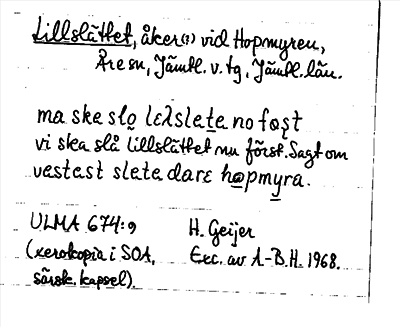 Lillslättet, åker(?) vid Hopmyren,
Åre sn, Jämtl. v. tg, Jämtl. län.
ma ske slo̤ lɛλslete no fo̤ʂt
vi ska slå lillslättet nu först. Sagt om
vestest slete darɛ ho̲pmy̲ra.
ULMA 674:9 H. Geijer
(xerokopia i SOA, Exc. av A-B.H. 1968.
särsk. kapsel).